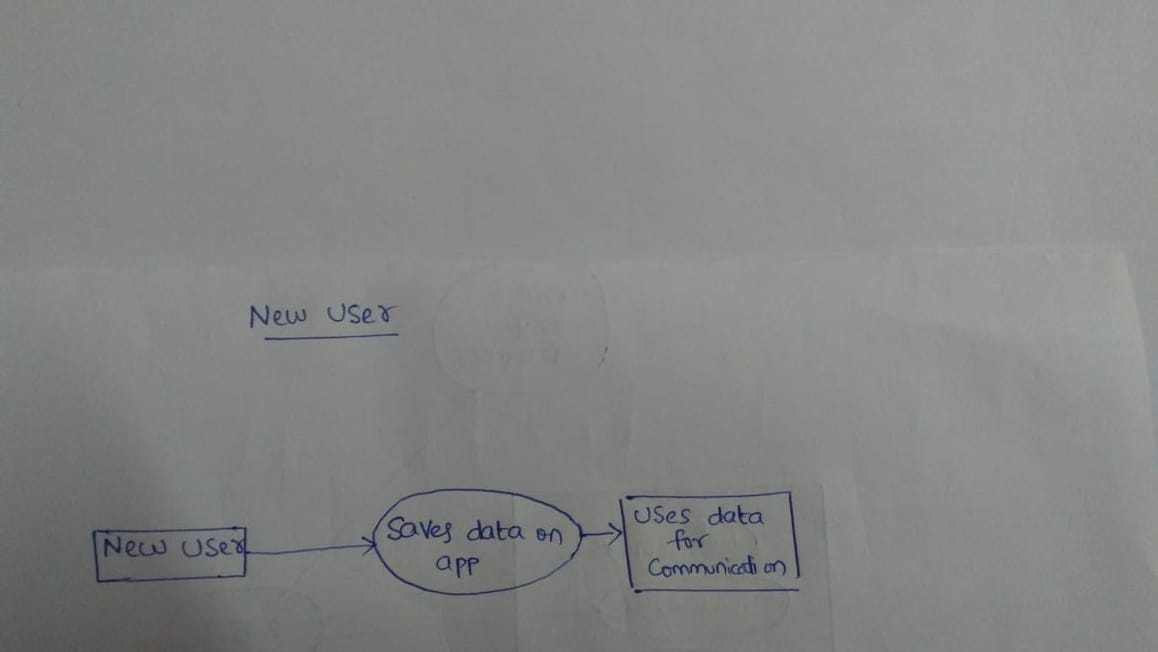 New User
New User
Saves data on
app
Uses data
for
Communication